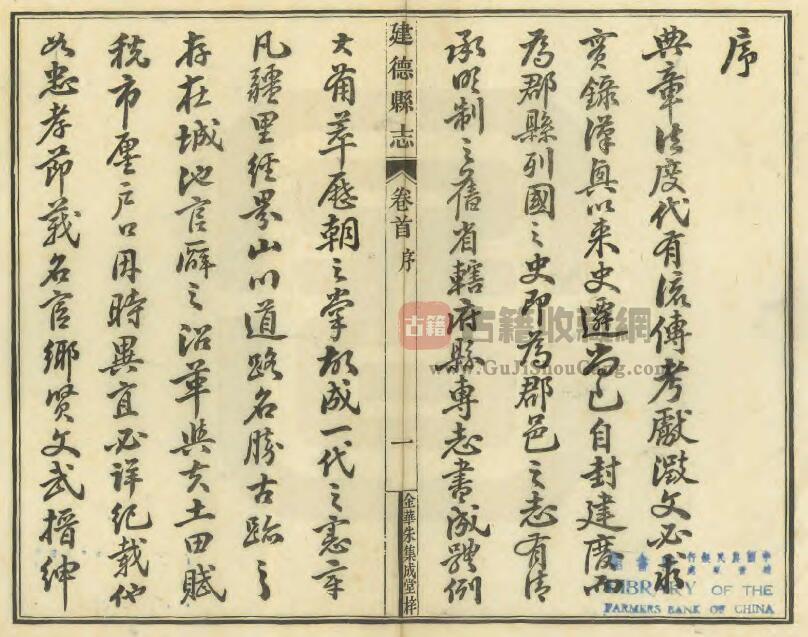 序
典章法度代有流傳考獻徵文必求
實錄漢興以来史遷尚已自封建廢而
為郡縣列國之史即為郡邑之志有清
承明制之舊省轄府縣專志書成體例
建德縣志 卷首 序 一 金華朱集成堂梓
大備萃歷朝之掌故成一代之憲章
凡疆里經界山川道路名勝古蹟之
存在城池官廨之沿革與夫土田賦
稅市廛户口因時異宜必詳紀載他
如忠孝節義名宦鄉贤文武搢紳
古籍 古籍收藏網
www.GuJiShouCang.com
LIBRARY OF THE
FARMERS BANK OF CHINA